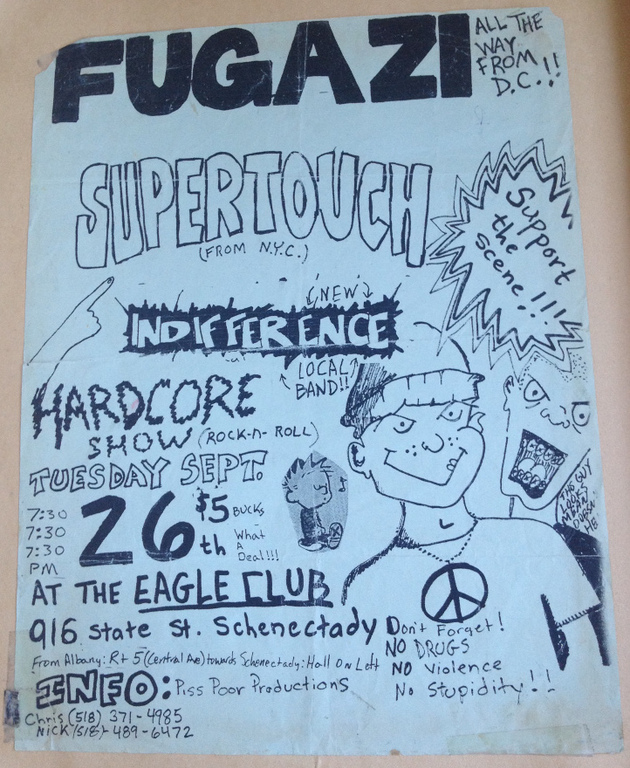 FUGAZI
ALL THE
WAY
FROM
D.C.!!
SUPERTOUCH
(FROM N.Y.C.)
Support
the
scene!!!
NEW
INDIFFERENCE
LOCAL
BAND!!
HARDCORE
SHOW (ROCK-N-ROLL)
TUESDAY SEPT.
7:30
7:30
7:30
PM
26th
$5 BUCKS
What
A
Deal!!!
THIS GUY
LOOKS
MEAN
AT THE EAGLE CLUB
916 State St. Schenectady
From Albany: Rt 5 (Central Ave) towards Schenectady: Hall On Left
INFO: Piss Poor Productions
Chris (518) 371-4985
Nick (518)-489-6472
Don't Forget!
NO DRUGS
NO Violence
No Stupidity!!